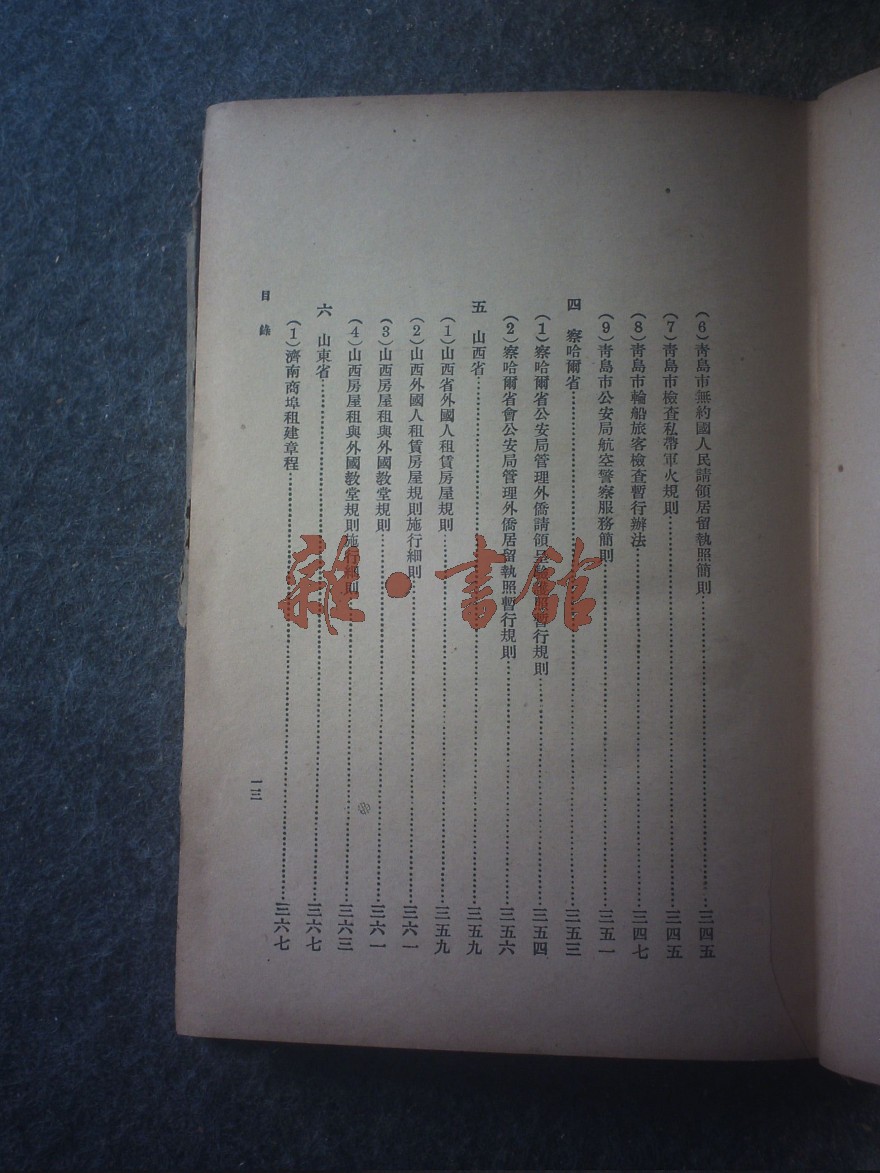 (6)靑島市無約國人民請領居留執照簡則…三四五
(7)靑島市檢查私帶軍火規則…三四五
(8)靑島市輪船旅客檢查暫行辦法…三四七
(9)靑島市公安局航空警察服務簡則…三五一
四 察哈爾省…三五三
(1)察哈爾省公安局管理外僑請領呈驗護照暫行規則…三五四
(2)察哈爾省會公安局管理外僑居留執照暫行規則…三五六
五 山西省…三五九
(1)山西省外國人租賃房屋規則…三五九
(2)山西外國人租賃房屋規則施行細則…三六一
(3)山西房屋租與外國敎堂規則…三六一
(4)山西房屋租與外國敎堂規則施行細則…三六三
六 山東省…三六七
(1)濟南商埠租建章程…三六七
目錄
一三
雜·書館